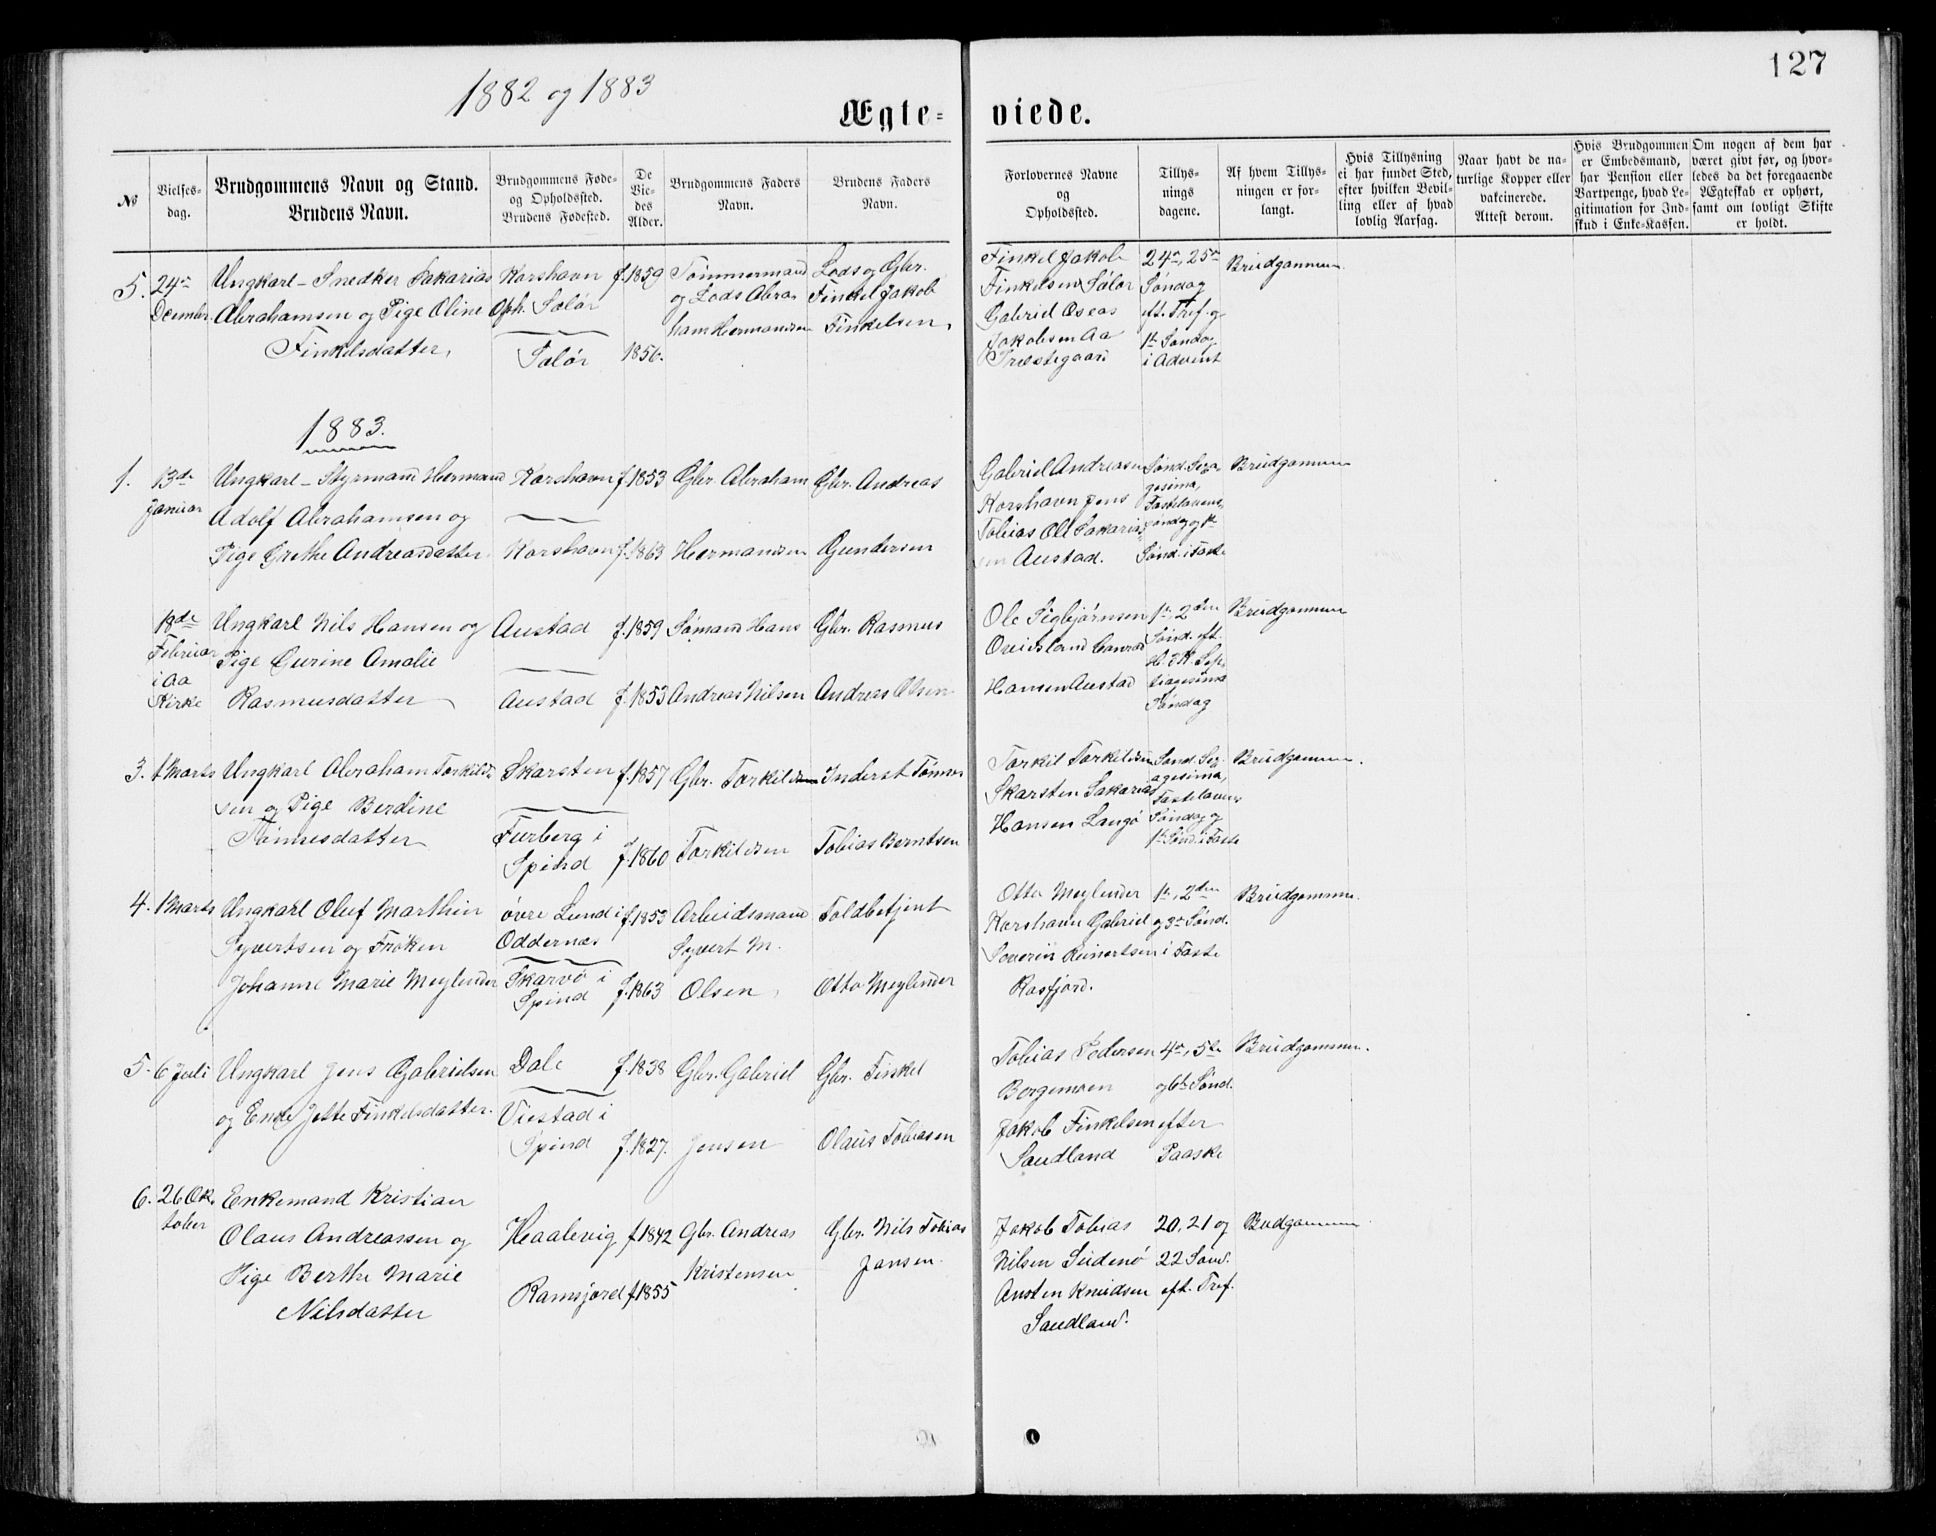 127
1882 og 1883
Ægte- viede.
№
Vielses-
dag.
Brudgommens Navn og Stand.
Brudens Navn.
Brudgommens Føde-
og Opholdssted.
Brudens Fødested.
De
Vie-
des
Alder.
Brudgommens Faders
Navn.
Brudens Faders
Navn.
Forlovernes Navne
og
Opholdssted.
Tillys-
nings
dagene.
Af hvem Tillys-
ningen er for-
langt.
Hvis Tillysning
ei har fundet Sted,
efter hvilken Bevil-
ling eller af hvad
lovlig Aarsag.
Naar havt de na-
turlige Kopper eller
vakcinerede.
Attest derom.
Hvis Brudgommen
er Embedsmand,
har Pension eller
Vartpenge, hvad Le-
gitimation for Ind-
skud i Enke-Kassen.
Om nogen af dem har
været givt før, og hvor-
ledes da det foregaaende
Ægteskab er ophørt,
samt om lovligt Skifte
er holdt.
5.
24de
December
Ungkarl- Snedker Sakarias
Abrahamsen og Pige Oline
Finkelsdatter,
Korshavn
Oph. Sølør
Sølør
f. 1859
1856.
Tømmermand
og Lods Abra-
ham Hermandsen
Lods og Gbr.
Finkel Jakob
Finkelsen,
Finkel Jakob
Finkelsen Sølør
Gabriel Oseas
Jakobsen Aa
Præstegaard
24de, 25de
Søndag
eft. Tref. og
1te Søndag
i Advent
Brudgommen.
1883.
1.
13de
Januar
Ungkarl- Styrmand Hermand
Adolf Abrahamsen og
Pige Grethe Andreasdatter
Korshavn
Korshavn
f. 1853
f. 1863
Gbr. Abraham
Hermandsen
Gbr. Andreas
Gundersen
Gabriel Andreasen
Korshavn Jens
Tobias Ole Sakarias-
sen Austad.
Sønd. Sexa-
gesima,
Fastelavns-
søndag og 1te
Sønd. i Faste
Brudgommen
18de
Februar
i Aa
Kirke
Ungkarl Nils Hansen og
Pige Gurine Amalie
Rasmusdatter
Austad
Austad
f. 1859
f. 1853
Sømand Hans
Andreas Nilsen
Gbr. Rasmus
Andreas Olsen
Ole Sigbjørnsen
Qvidsland
Hansen Austad
1te, 2den
Sønd. eft.
H. 3 K. Sep-
tuagesima
Søndag
Brudgommen
3.
1 Marts
Ungkarl Abraham Torkild-
sen og Pige Berdine
Tønnesdatter
Skarsten
Furberg i
Spind
f. 1857
f. 1860
Gbr. Torkild
Torkildsen
Inderst Tønnes
Tobias Berntsen
Torkil Torkildsen
Skarsten Sakarias
Hansen Langø
Sønd. Sex-
agesima,
Fastelavns
Søndag og
1te Sønd. i Faste
Brudgommen.
4.
1 Marts
Ungkarl Oluf Marthin
Syvertsen og Frøken
Johanne Marie Meylender
øvre Lund i
Oddernæs
Skarvø i
Spind
f. 1853
f. 1863
Arbeidsmand
Syvert M.
Olsen,
Toldbetjent
Otto Meylender
Otto Meylender
Korshavn Gabriel
Severin Reinertsen
Rosfjord.
1te, 2den
og 3de Sønd.
i Faste
Brudgommen.
5.
6 Juli
Ungkarl Jens Gabrielsen
og Enke Jette Finkelsdatter.
Dale
Viestad i
Spind
f. 1838
f. 1827.
Gbr. Gabriel
Jensen
Gbr. Finkel
Olaus Tobiasen
Tobias Pedersen
Borgemoen
Jakob Finkelsen
Sandland
4de, 5te
og 6te Sønd.
efter
Paaske
Brudgommen.
6.
26 Ok-
tober
Enkemand Kristian
Olaus Andreassen og
Pige Berthe Marie
Nilsdatter
Haalevig
Ramsjord
f. 1842
f. 1855
Gbr. Andreas
Kristensen
Gbr. Nils Tobias
Jansen.
Jakob Tobias
Nilsen Sudenø
Austen Knudsen
Sandland.
20, 21 og
22 Sønd.
eft. Tref.
Budgommen